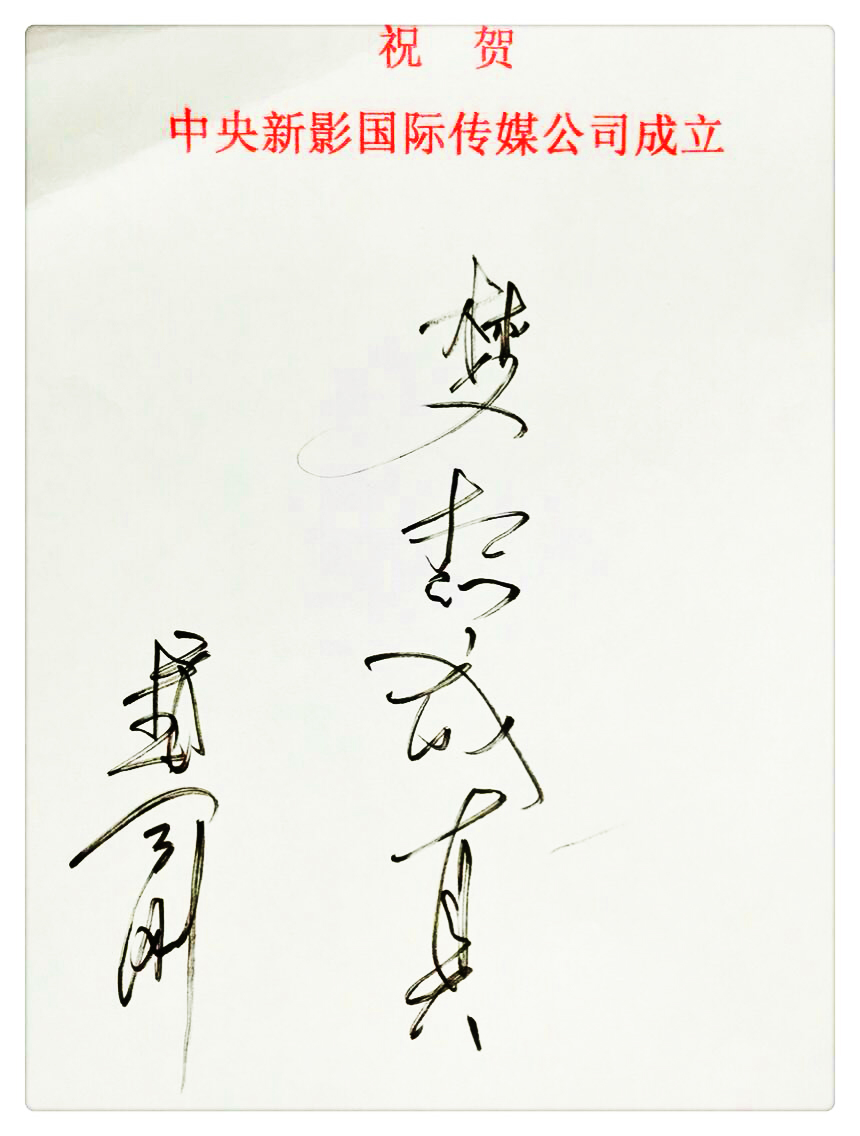 祝 贺
中央新影国际传媒公司成立
梦想成真